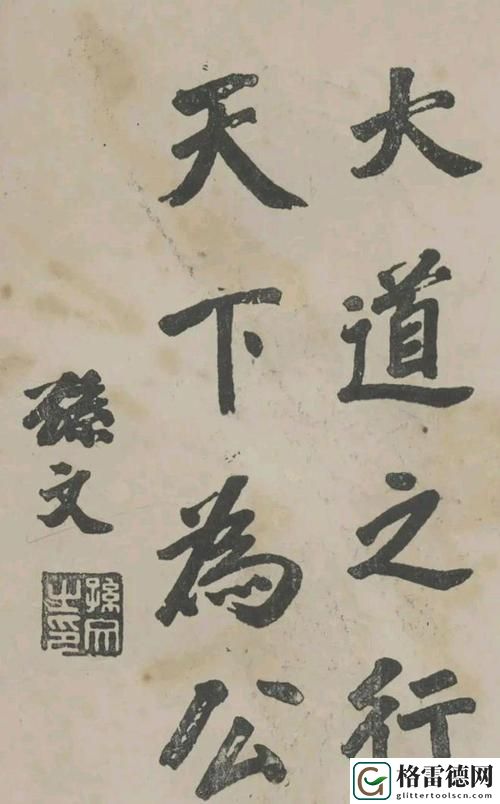 大道之行
天下為公
孫文
孫文之印
格雷德网
glittertoolscn.com